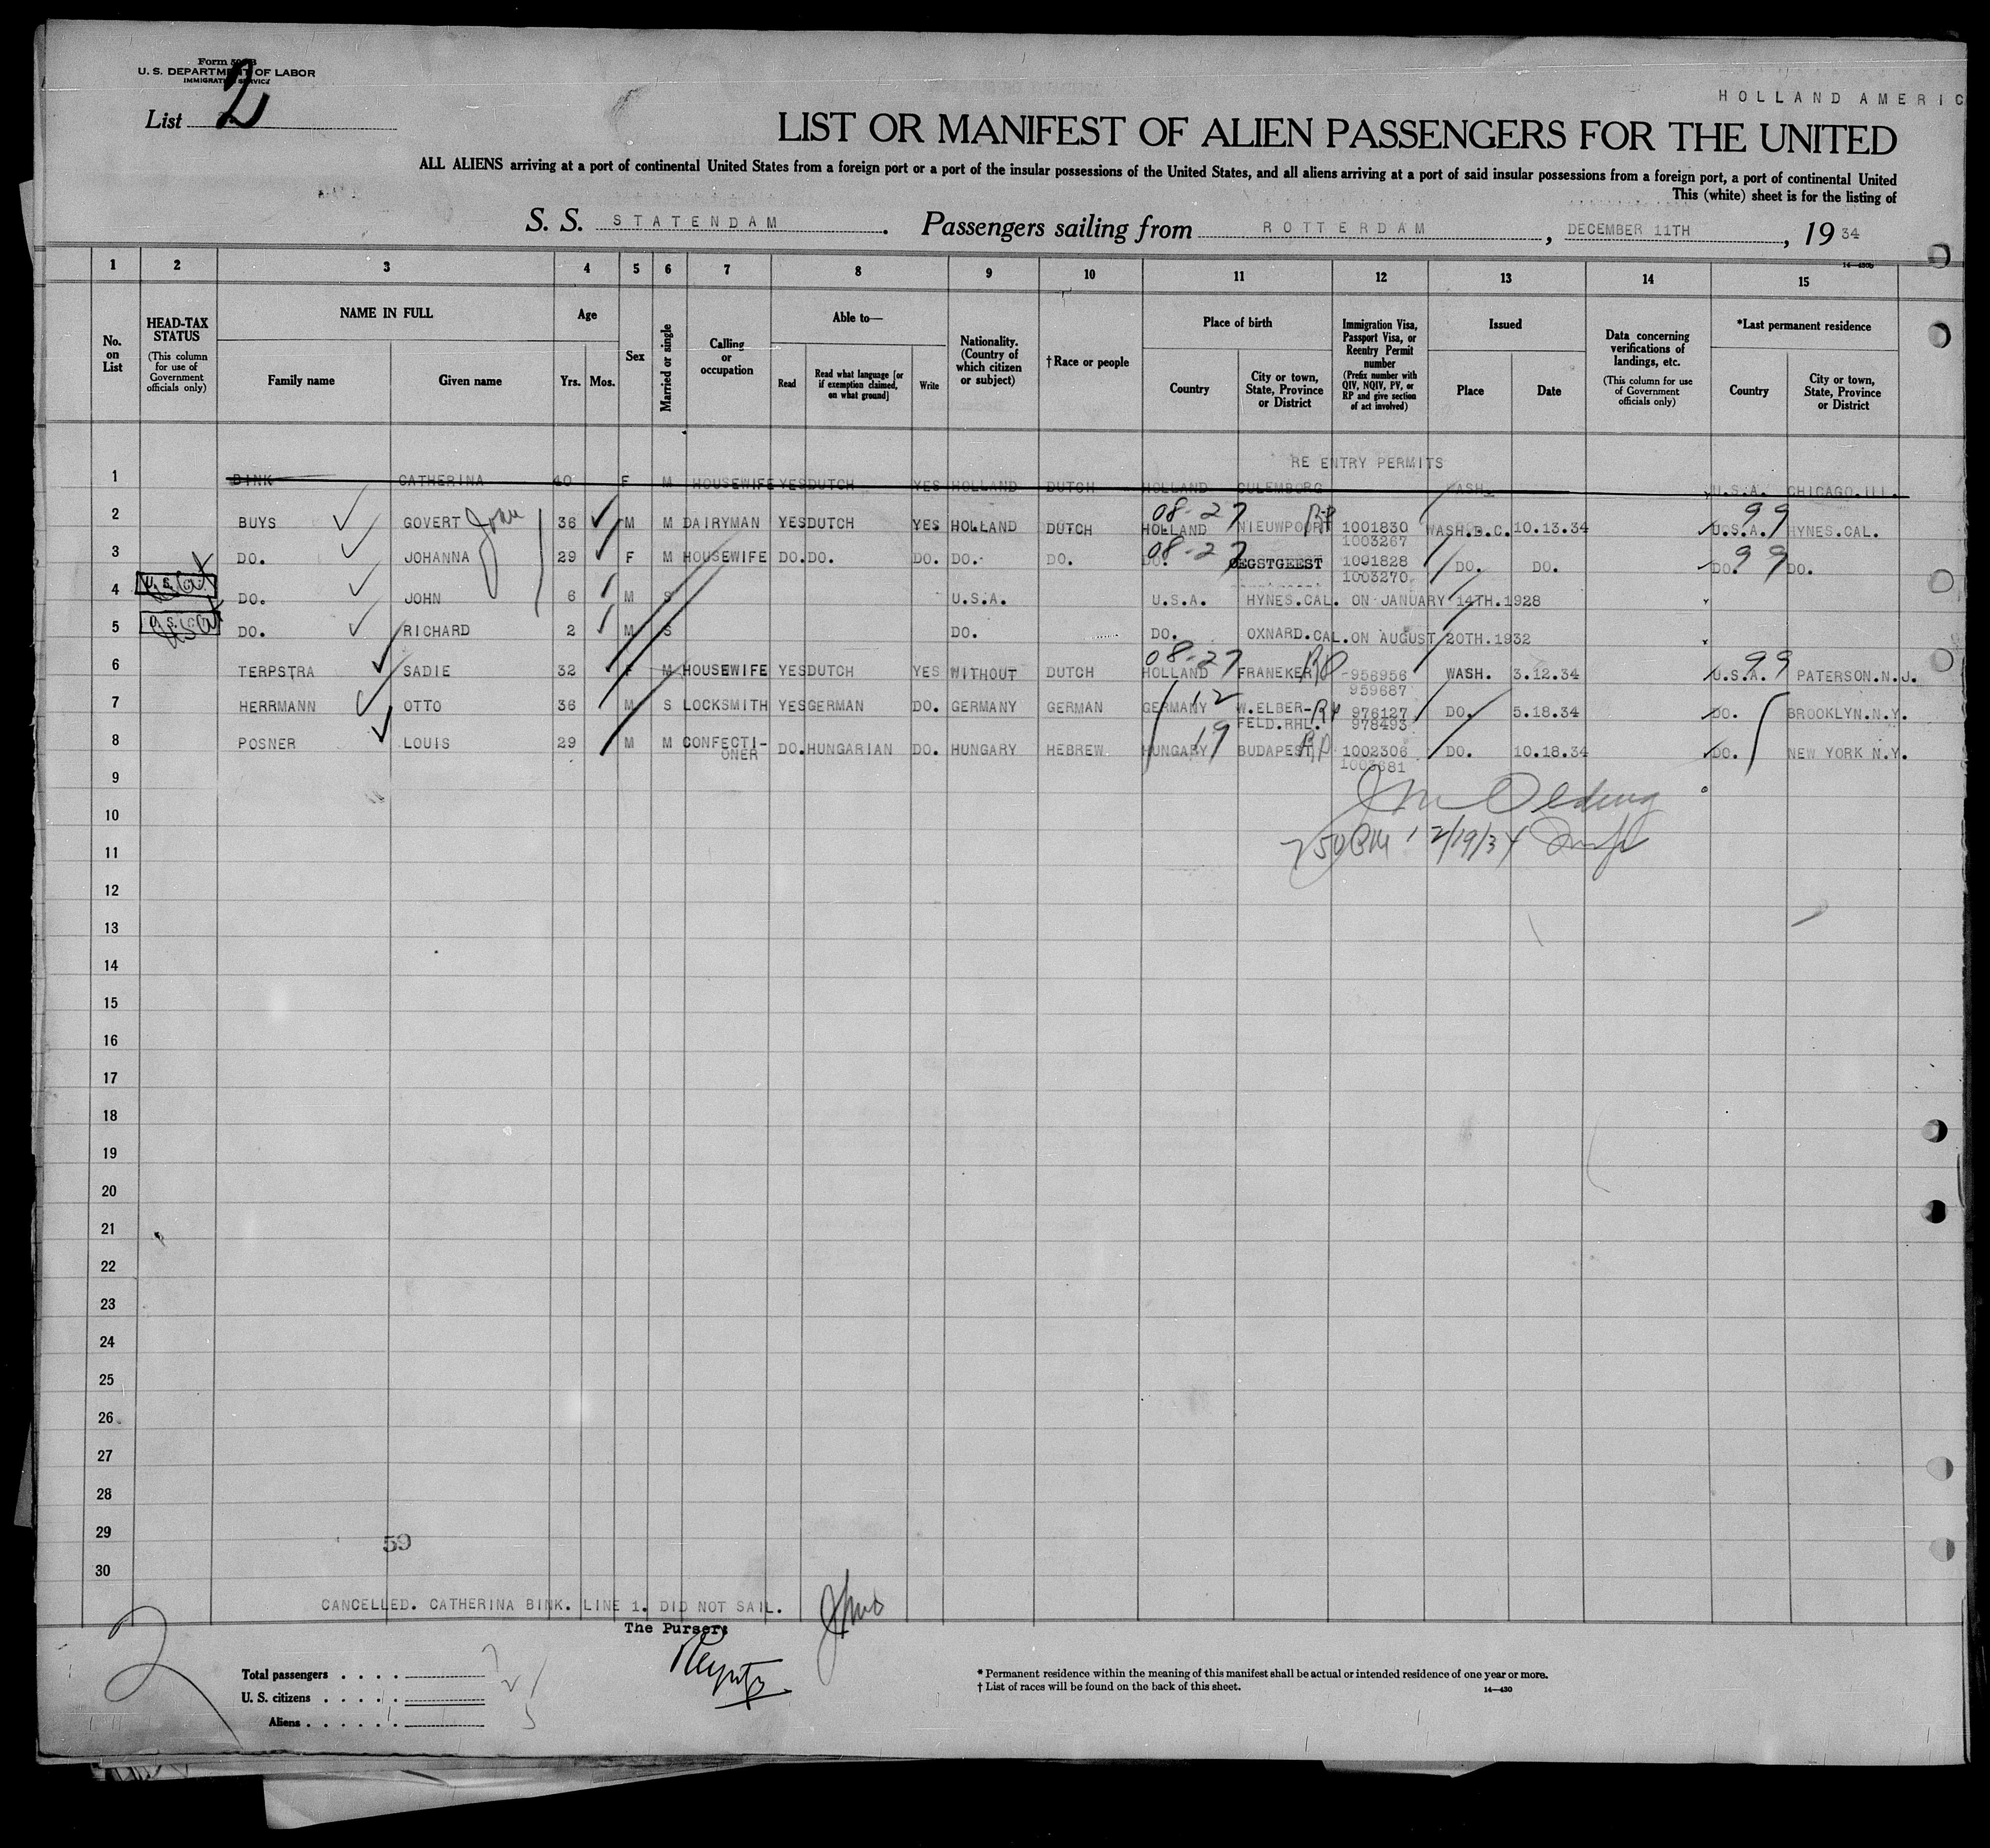 Form 500 B
U. S. DEPARTMENT OF LABOR
IMMIGRATION SERVICE
List 2
HOLLAND AMERIC
LIST OR MANIFEST OF ALIEN PASSENGERS FOR THE UNITED
ALL ALIENS arriving at a port of continental United States from a foreign port or a port of the insular possessions of the United States, and all aliens arriving at a port of said insular possessions from a foreign port, a port of continental United
This (white) sheet is for the listing of
S. S. STATENDAM. Passengers sailing from ROTTERDAM, DECEMBER 11TH, 19 34
1 2 3 4 5 6 7 8 9 10 11 12 13 14 15
No. on List
HEAD-TAX STATUS (This column for use of Government officials only)
NAME IN FULL Family name Given name
Age Yrs. Mos.
Sex
Married or single
Calling or occupation
Able to— Read Read what language [or if exemption claimed, on what ground] Write
Nationality. (Country of which citizen or subject)
†Race or people
Place of birth Country City or town, State, Province or District
Immigration Visa, Passport Visa, or Reentry Permit number (Prefix number with QIV, NQIV, PV, or RP and give section of act involved)
Issued Place Date
Data concerning verifications of landings, etc. (This column for use of Government officials only)
*Last permanent residence Country City or town, State, Province or District
RE ENTRY PERMITS
1 BINK CATHERINA 40 F M HOUSEWIFE YES DUTCH YES HOLLAND DUTCH HOLLAND CULEMBORG WASH. U.S.A. CHICAGO.ILL.
08-27 RP 99
2 BUYS GOVERT 36 M M DAIRYMAN YES DUTCH YES HOLLAND DUTCH HOLLAND NIEUWPOORT 1001830 WASH.D.C. 10.13.34 U.S.A. HYNES.CAL.
1003267
08-27 99
3 DO. JOHANNA 29 F M HOUSEWIFE DO. DO. DO. DO. DO. DO. OEGSTGEEST 1001828 DO. DO. DO. DO.
1003270
U. S. Cit.
4 DO. JOHN 6 M S U.S.A. U.S.A. HYNES.CAL. ON JANUARY 14TH.1928
U. S. Cit.
5 DO. RICHARD 2 M S DO. DO. OXNARD.CAL. ON AUGUST 20TH.1932
08-27 RP 99
6 TERPSTRA SADIE 32 F M HOUSEWIFE YES DUTCH YES WITHOUT DUTCH HOLLAND FRANEKER 958956 WASH. 3.12.34 U.S.A. PATERSON.N.J.
959687
12
7 HERRMANN OTTO 36 M S LOCKSMITH YES GERMAN DO. GERMANY GERMAN GERMANY W.ELBER- 976127 DO. 5.18.34 DO. BROOKLYN.N.Y.
FELD.RHL. 978493
19 RP
8 POSNER LOUIS 29 M M CONFECTI- DO. HUNGARIAN DO. HUNGARY HEBREW HUNGARY BUDAPEST 1002306 DO. 10.18.34 DO. NEW YORK N.Y.
ONER 1003681
9
10
11
12/19/34
12
13
14
15
16
17
18
19
20
21
22
23
24
25
26
27
28
29
59
30
CANCELLED. CATHERINA BINK. LINE 1. DID NOT SAIL.
The Purser:
2
Total passengers
U. S. citizens
Aliens
* Permanent residence within the meaning of this manifest shall be actual or intended residence of one year or more.
† List of races will be found on the back of this sheet.
14—430